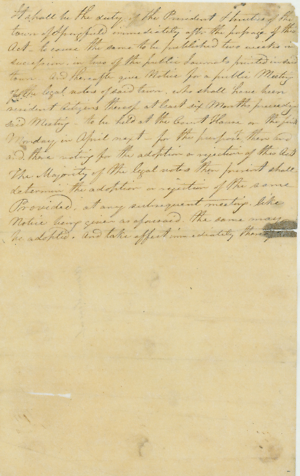 It shall be the duty of the President & Trustees of the
town of Springfield immediately after the passage of this
Act to cause the same to be published two weeks in
succession in one of the public Journals printed in said
town and thereafter give Notice for a public Meeting
of the legal voters of said town who shall have been
resident citizens thereof at least six Months preceding
said Meeting To be held at the Court House on the first
Monday in April next for the purpose then
and there voting for the adoption or rejection of this Act
The Majority of the legal votes then present shall
determine the adoption or rejection of the same
Provided, at any subsequent meeting like
Notice being given as aforesaid the same may
be adopted and take effect immediately